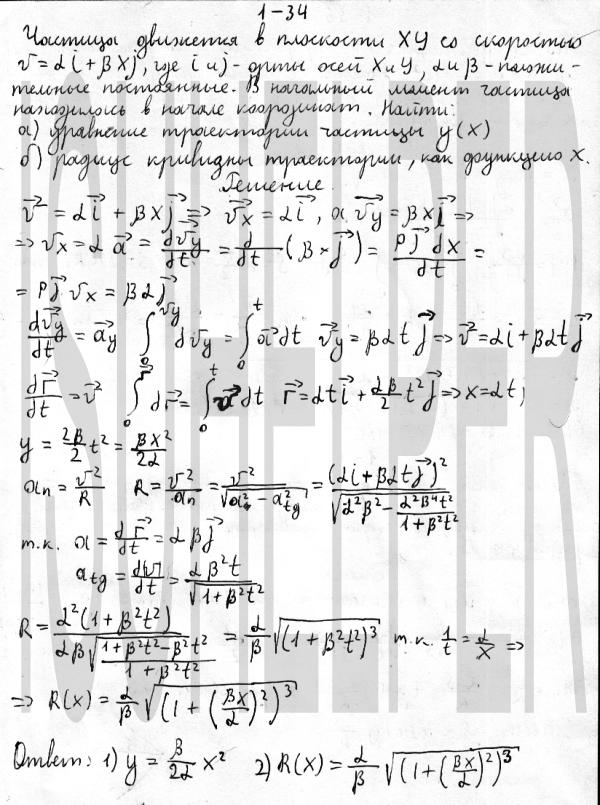 1-34
Частица движется в плоскости XY со скоростью
v⃗ = αi + βXj, где i и j - орты осей X и Y, α и β - положи-
тельные постоянные. В начальный момент частица
находилось в начале координат. Найти:
а) уравнение траектории частицы y(x)
б) радиус кривизны траектории, как функцию X.
Решение
v⃗ = αi⃗ + βXj⃗ => v⃗x = αi⃗, а v⃗y = βXj⃗ =>
=> vx = α a⃗ = dv⃗y/dt = d/dt (βxj⃗) = βj⃗ dx/dt =
= βj⃗ vx = βαj⃗
dv⃗y/dt = a⃗y ∫₀^vy dvy = ∫₀^t a⃗dt v⃗y = βαtj⃗ => v⃗ = αi + βαtj⃗
dr⃗/dt = v⃗ ∫₀^r dr⃗ = ∫₀^t v⃗dt r⃗ = αti⃗ + αβ/2 t²j⃗ => x = αt;
y = αβ/2 t² = βx²/2α
an = v²/R R = v²/an = v²/√(a² - a²tg) = (αi + βαtj⃗)²/√(α²β² - α²β⁴t²/(1+β²t²))
т.к. a = dr⃗/dt = αβj⃗
atg = dv/dt = αβ²t/√(1+β²t²)
R = α²(1+β²t²)/(αβ√((1+β²t²-β²t²)/(1+β²t²))) = α/β √((1+β²t²)³) т.к. 1/t = α/x =>
=> R(x) = α/β √((1+(βx/α)²)³)
Ответ: 1) y = β/2α x² 2) R(x) = α/β √((1+(βx/α)²)³)
SHELPER